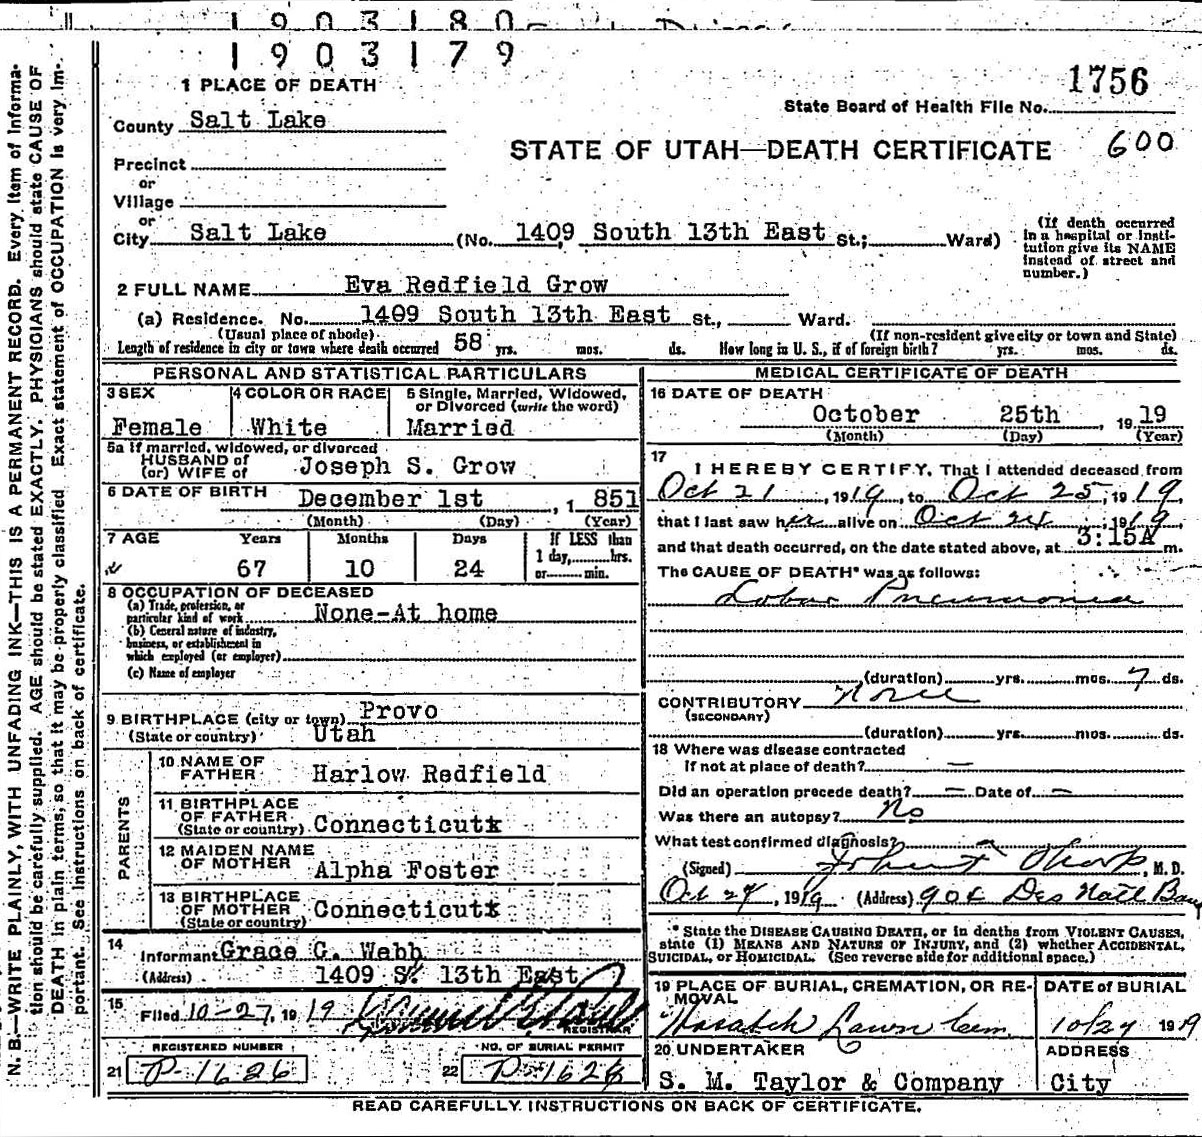 1903180
1903179
1756
State Board of Health File No.
600
1 PLACE OF DEATH
County Salt Lake
STATE OF UTAH—DEATH CERTIFICATE
Precinct
or
Village
or
City Salt Lake (No. 1409 South 13th East St.; Ward)
(If death occurred
in a hospital or insti-
tution give its NAME
instead of street and
number.)
2 FULL NAME Eva Redfield Grow
(a) Residence. No. 1409 South 13th East St., Ward.
(Usual place of abode) (If non-resident give city or town and State)
Length of residence in city or town where death occurred 58 yrs. mos. ds. How long in U. S., if of foreign birth? yrs. mos. ds.
PERSONAL AND STATISTICAL PARTICULARS
3 SEX
Female
4 COLOR OR RACE
White
5 Single, Married, Widowed,
or Divorced (write the word)
Married
5a If married, widowed, or divorced
HUSBAND of
(or) WIFE of Joseph S. Grow
6 DATE OF BIRTH
December 1st, 1851
(Month) (Day) (Year)
7 AGE Years Months Days
67 10 24
If LESS than
1 day, hrs.
or min.
8 OCCUPATION OF DECEASED
(a) Trade, profession, or
particular kind of work None-At home
(b) General nature of industry,
business, or establishment in
which employed (or employer)
(c) Name of employer
9 BIRTHPLACE (city or town) Provo
(State or country) Utah
PARENTS
10 NAME OF
FATHER Harlow Redfield
11 BIRTHPLACE
OF FATHER
(State or country) Connecticut
12 MAIDEN NAME
OF MOTHER Alpha Foster
13 BIRTHPLACE
OF MOTHER
(State or country) Connecticut
14
Informant Grace G. Webb
(Address) 1409 S. 13th East
15
Filed 10-27, 1919
REGISTRAR
REGISTERED NUMBER
21 P-1626
NO. OF BURIAL PERMIT
22 P-1626
MEDICAL CERTIFICATE OF DEATH
16 DATE OF DEATH
October 25th, 1919
(Month) (Day) (Year)
17
I HEREBY CERTIFY, That I attended deceased from
Oct 21, 1919, to Oct 25, 1919,
that I last saw her alive on Oct 24, 1919,
and that death occurred, on the date stated above, at 3:15A m.
The CAUSE OF DEATH* was as follows:
Lobar Pneumonia
(duration) yrs. mos. 7 ds.
CONTRIBUTORY None
(SECONDARY)
(duration) yrs. mos. ds.
18 Where was disease contracted
If not at place of death? —
Did an operation precede death? — Date of —
Was there an autopsy? No
What test confirmed diagnosis?
(Signed) M. D.
Oct 27, 1919 (Address) 904 Des Natl Bank
* State the DISEASE CAUSING DEATH, or in deaths from VIOLENT CAUSES,
state (1) MEANS AND NATURE OF INJURY, and (2) whether ACCIDENTAL,
SUICIDAL, or HOMICIDAL. (See reverse side for additional space.)
19 PLACE OF BURIAL, CREMATION, OR RE-
MOVAL
Wasatch Lawn Cem
DATE OF BURIAL
10/27 1919
20 UNDERTAKER
S. M. Taylor & Company
ADDRESS
City
READ CAREFULLY. INSTRUCTIONS ON BACK OF CERTIFICATE.
N. B.—WRITE PLAINLY, WITH UNFADING INK—THIS IS A PERMANENT RECORD. Every item of informa-
tion should be carefully supplied. AGE should be stated EXACTLY. PHYSICIANS should state CAUSE OF
DEATH in plain terms, so that it may be properly classified. Exact statement of OCCUPATION is very im-
portant. See instructions on back of certificate.